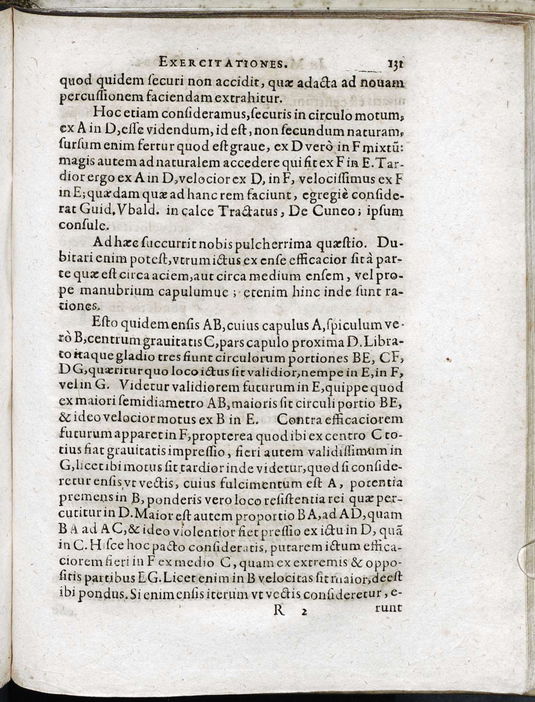 EXERCITATIONES. 131
quod quidem securi non accidit, quæ adacta ad nouam
percussionem faciendam extrahitur.
Hoc etiam consideramus, securis in circulo motum,
ex A in D, esse videndum, id est, non secundum naturam,
sursum enim fertur quod est graue, ex D verò in F mixtũ:
magis autem ad naturalem accedere qui fit ex F in E. Tar-
dior ergo ex A in D, velocior ex D, in F, velocissimus ex F
in E; quædam quæ ad hanc rem faciunt, egregiè conside-
rat Guid. Vbald. in calce Tractatus, De Cuneo; ipsum
consule.
Ad hæc succurrit nobis pulcherrima quæstio. Du-
bitari enim potest, vtrum ictus ex ense efficacior sit à par-
te quæ est circa aciem, aut circa medium ensem, vel pro-
pe manubrium capulumue; etenim hinc inde sunt ra-
tiones.
Esto quidem ensis AB, cuius capulus A, spiculum ve-
rò B, centrum grauitatis C, pars capulo proxima D. Libra-
to itaque gladio tres fiunt circulorum portiones BE, CF,
DG, quæritur quo loco ictus sit validior, nempe in E, in F,
vel in G. Videtur validiorem futurum in E, quippe quod
ex maiori semidiametro AB, maioris sit circuli portio BE,
& ideo velocior motus ex B in E. Contra efficaciorem
futurum apparet in F, propterea quod ibi ex centro C to-
tius fiat grauitatis impressio, fieri autem validissimum in
G, licet ibi motus sit tardior inde videtur, quod si conside-
retur ensis vt vectis, cuius fulcimentum est A, potentia
premens in B, ponderis vero loco resistentia rei quæ per-
cutitur in D. Maior est autem proportio BA, ad AD, quam
BA ad AC, & ideo violentior fiet pressio ex ictu in D, quã
in C. Hisce hoc pacto consideratis, putarem ictum effica-
ciorem fieri in F ex medio C, quam ex extremis & oppo-
sitis partibus EG. Licet enim in B velocitas sit maior, deest
ibi pondus. Si enim ensis iterum vt vectis consideretur, e-
R 2 runt